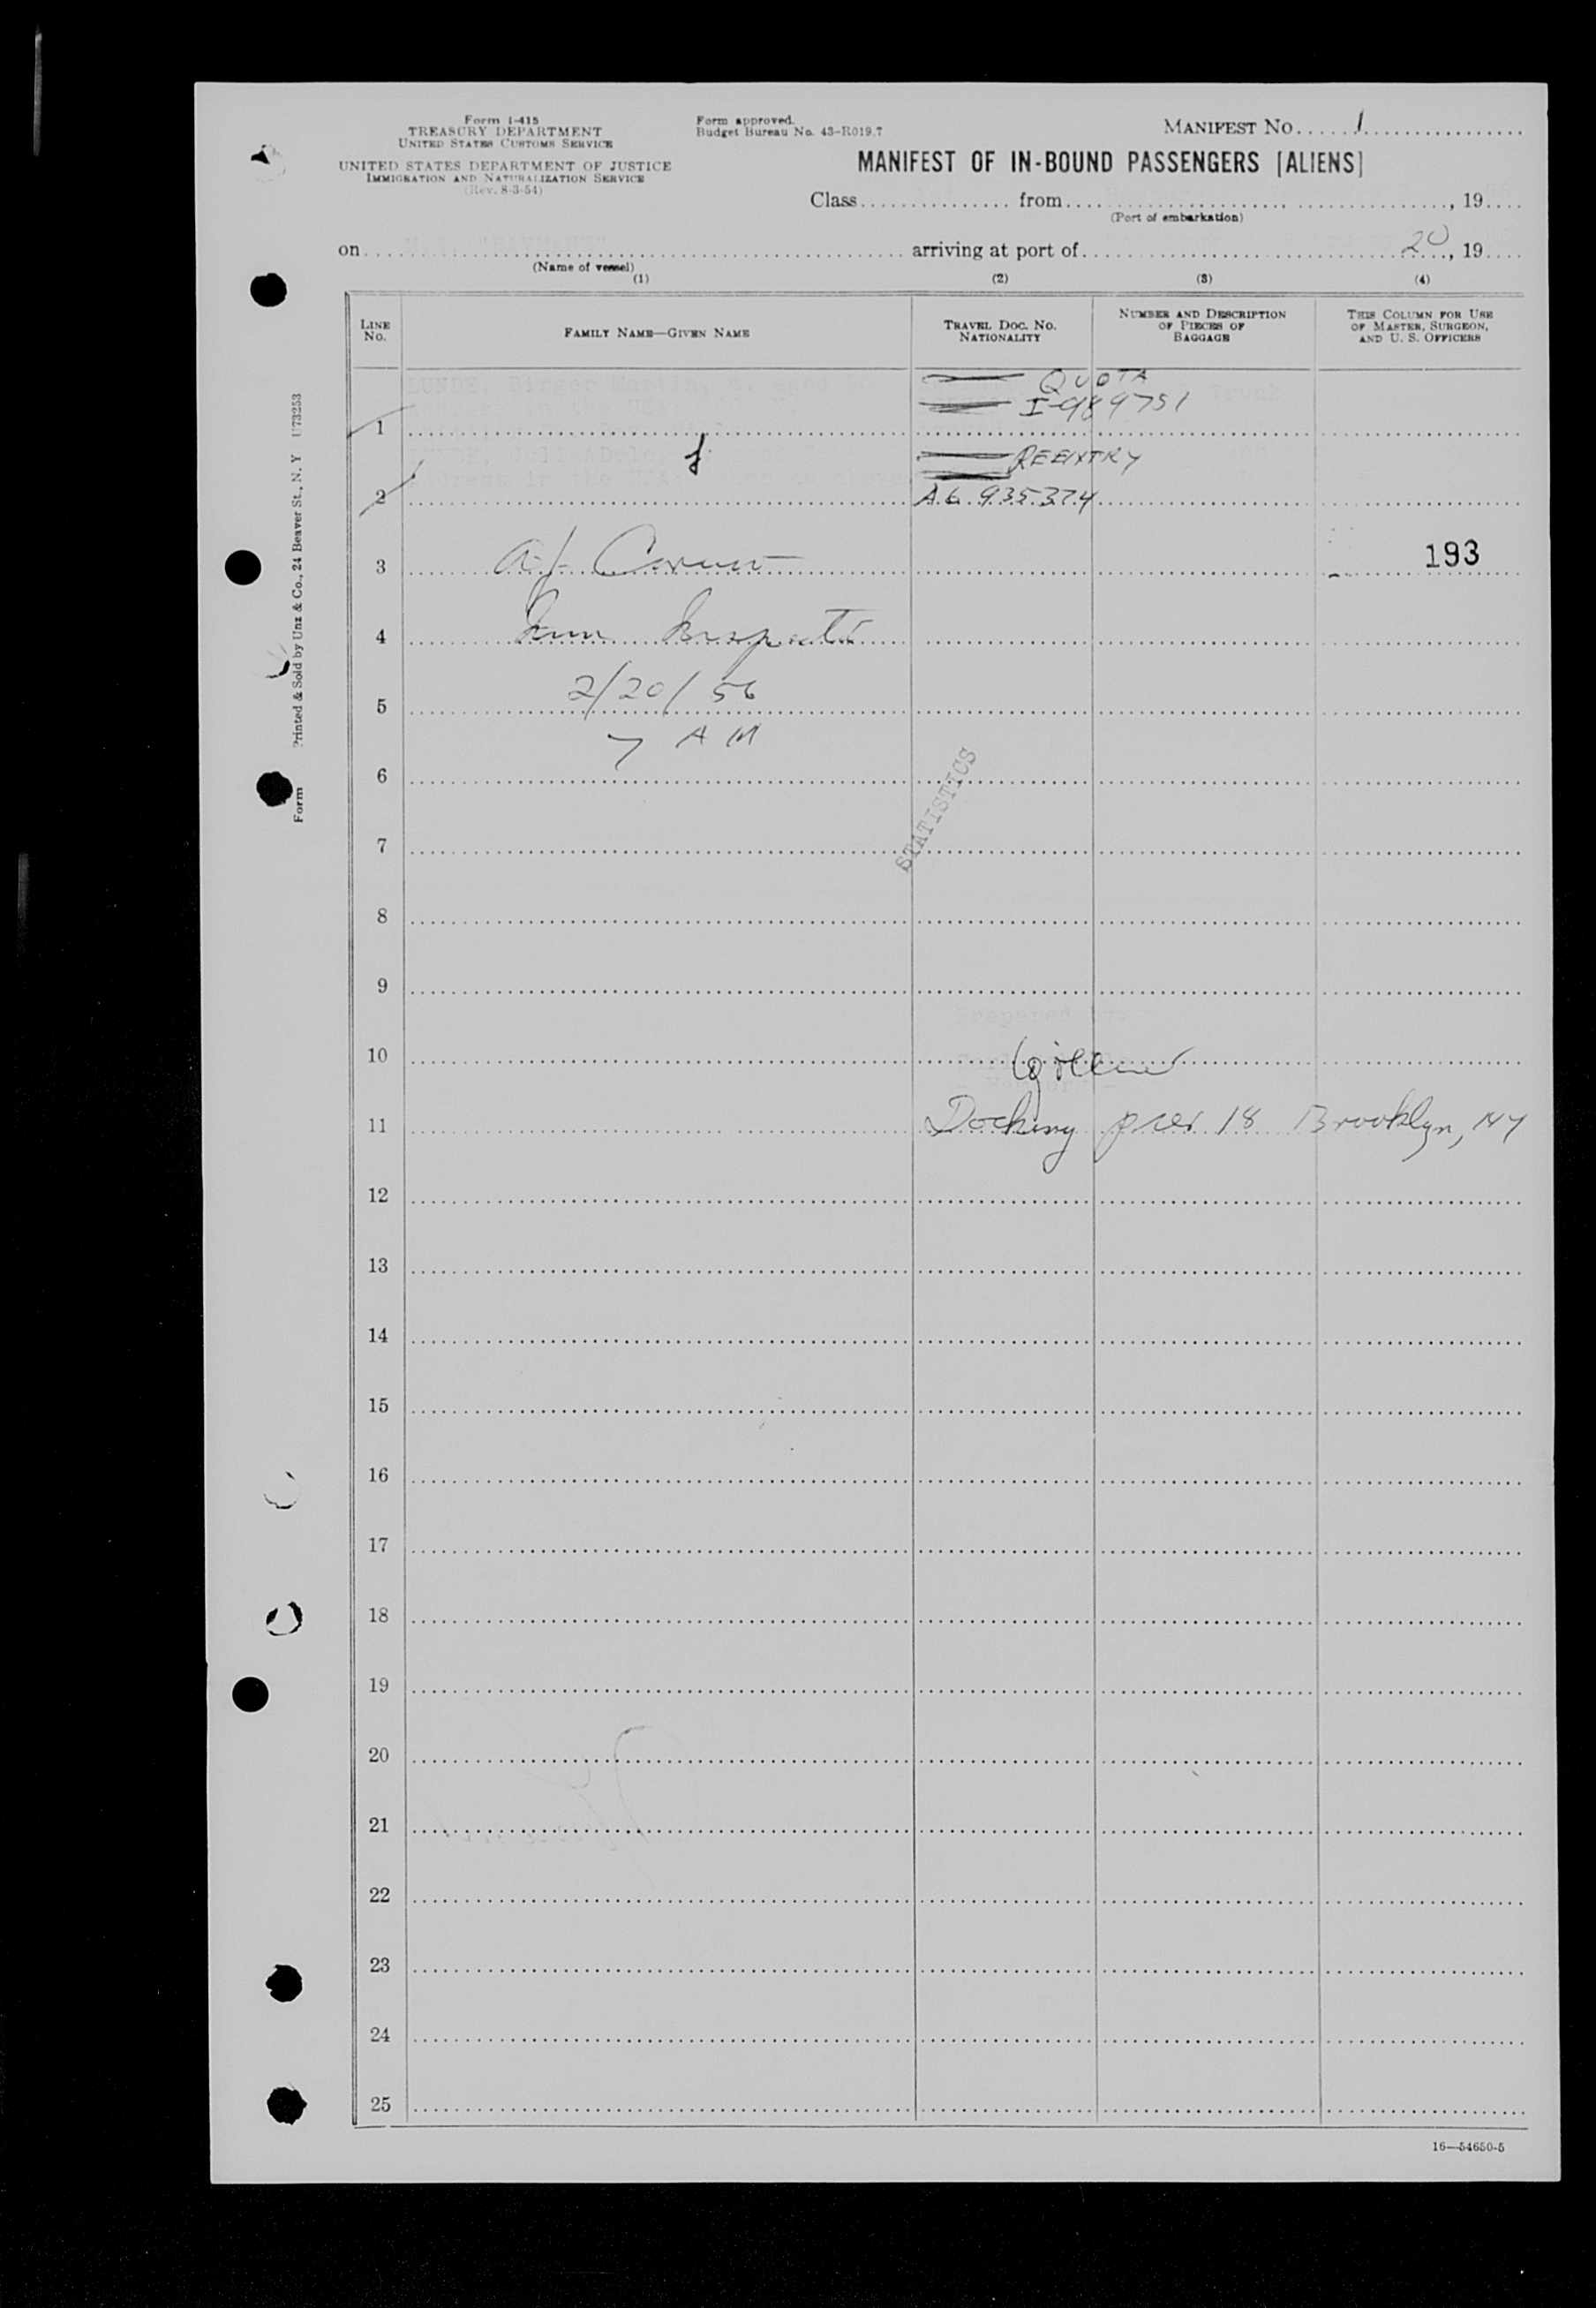 Form I-415
TREASURY DEPARTMENT
UNITED STATES CUSTOMS SERVICE
UNITED STATES DEPARTMENT OF JUSTICE
IMMIGRATION AND NATURALIZATION SERVICE
(Rev. 8-3-54)
Form approved.
Budget Bureau No. 43-R019.7
MANIFEST NO. 1
MANIFEST OF IN-BOUND PASSENGERS [ALIENS]
Class from , 19
(Port of embarkation)
on arriving at port of 20, 19
(Name of vessel)
(1) (2) (3) (4)
LINE NO.
FAMILY NAME—GIVEN NAME
TRAVEL DOC. NO. NATIONALITY
NUMBER AND DESCRIPTION OF PIECES OF BAGGAGE
THIS COLUMN FOR USE OF MASTER, SURGEON, AND U. S. OFFICERS
LUNDE, Birger
QUOTA
I-989751
1
REENTRY
2 A6 935 374
3 193
4
5 2/20/56
7 AM
6
STATISTICS
7
8
9
10
11 Docking pier 18 Brooklyn, NY
12
13
14
15
16
17
18
19
20
21
22
23
24
25
16—54650-5
Form Printed & Sold by Unz & Co., 24 Beaver St., N. Y U73253